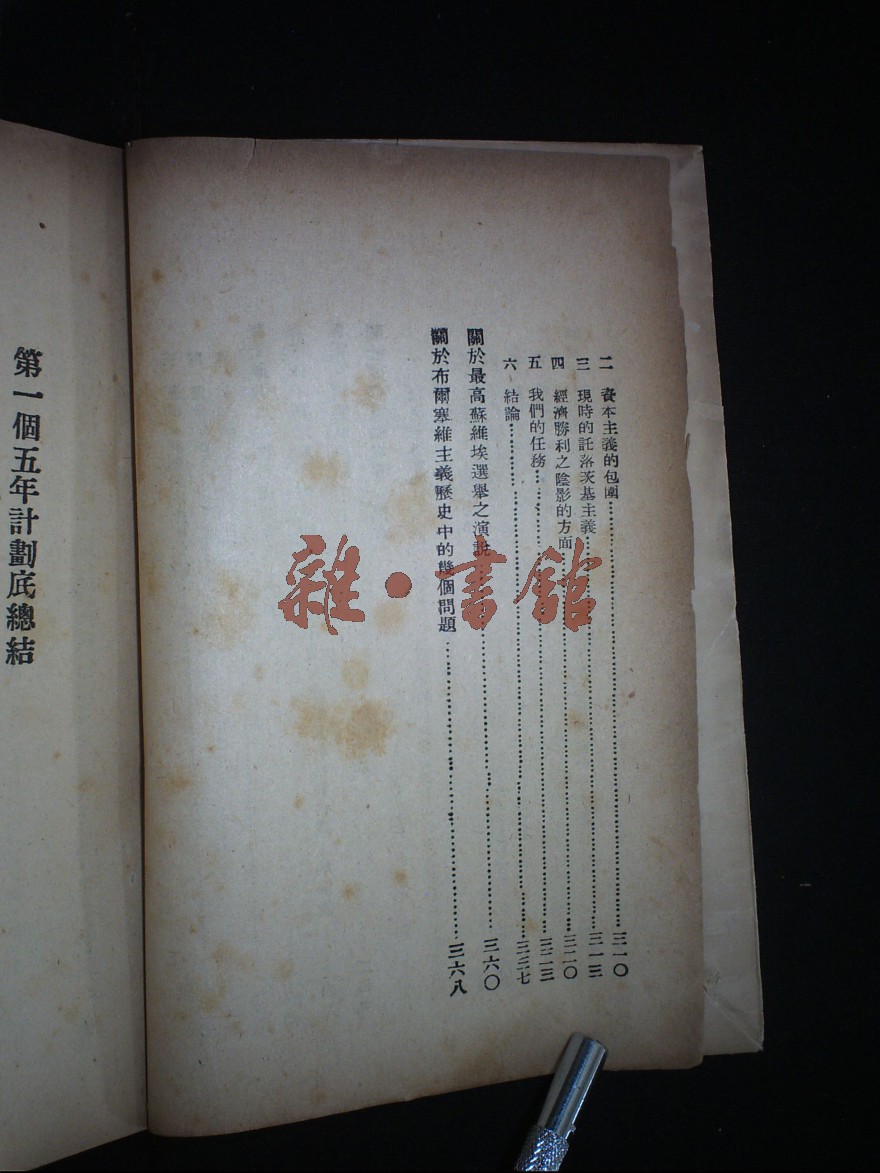 二　資本主義的包圍……三一〇
三　現時的託洛茨基主義……三一三
四　經濟勝利之陰影的方面……三二〇
五　我們的任務……三二三
六　結論……三三七
關於最高蘇維埃選舉之演說……三六〇
關於布爾塞維主義歷史中的幾個問題……三六八
第一個五年計劃底總結
雜·書館